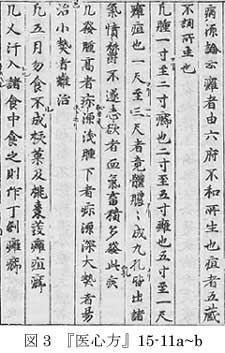 病源論云癰者由六府不和所生也疽者五藏
不調所生也
凡腫一寸至二寸癤也二寸至五寸癰也五寸至一尺
癰疽也一尺至三尺者竟體癰〻成九孔皆出諸
氣憤欝不遂志欲者血氣蓄積多發此疾
凡發腹高者疹源浅腫下者疹源深大熱者易
治小熱者難治
凡五月勿食不成核菓及桃棗發癰疽癤
凡人汗入諸食中食之則作丁創癰癤
図3 『医心方』15-11a~b